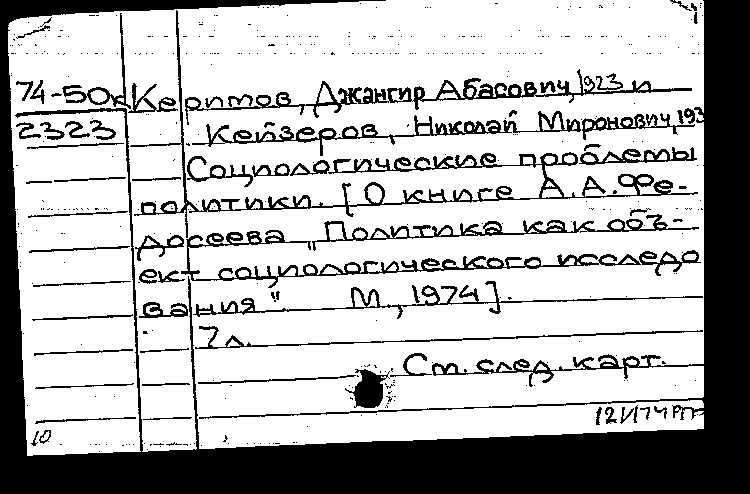 74-50к Керимов, Джангир Абасович, 1923 и
2323 Кейзеров, Николай Миронович, 193
Социологические проблемы
политики. [О книге А.А.Фе-
досеева „Политика как объ-
ект социологического исследо
вания" М., 1974].
7 л.
См. след. карт.
10